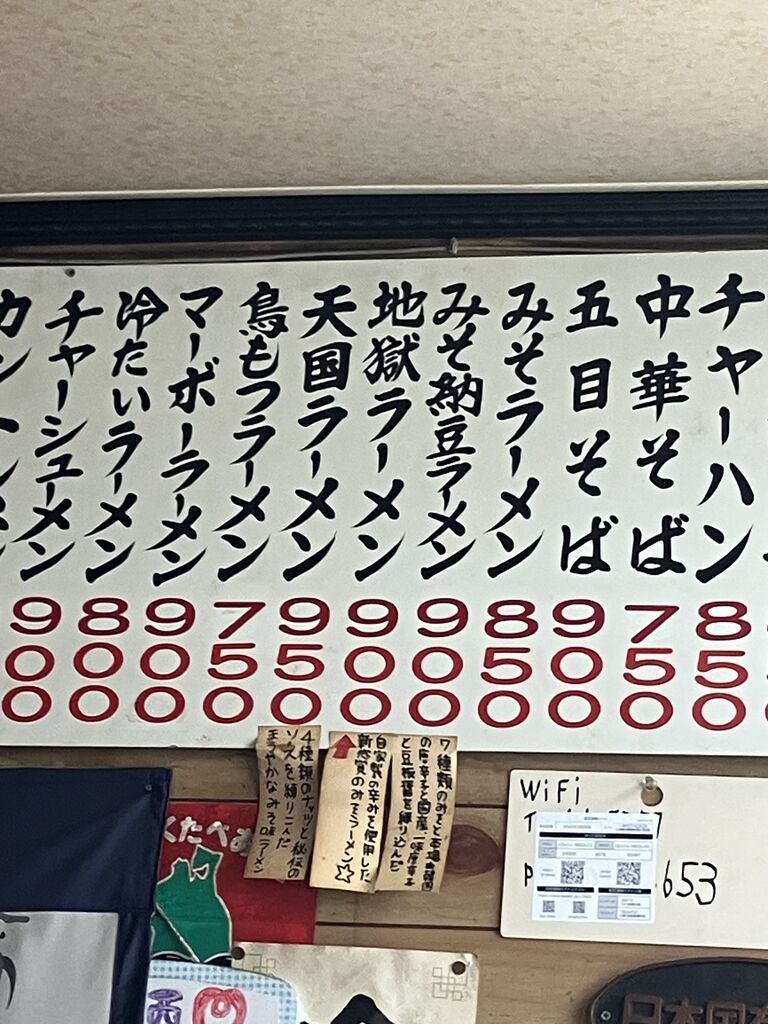 チャーハン
850
中華そば
750
五目そば
900
みそラーメン
850
みそ納豆ラーメン
900
地獄ラーメン
900
天国ラーメン
950
鳥もつラーメン
750
マーボーラーメン
900
冷たいラーメン
800
チャーシューメン
900
7種類のみそと
韓国
の唐辛子と国産一味唐辛子
と豆板醤を練り込んだ
自家製の辛みそを使用した
新感覚のみそラーメン☆
4種類のナッツと秘伝の
ソースを練りこんだ
まろやかなみそ味ラーメン
WiFi
653
くたべ
日本国